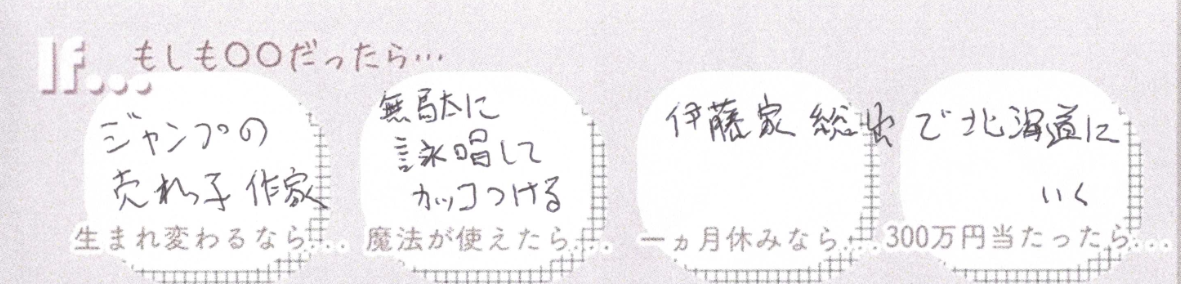 If... もしも〇〇だったら…
ジャンプの
売れっ子作家
生まれ変わるなら...
無駄に
詠唱して
カッコつける
魔法が使えたら...
伊藤家 総出で北海道に
いく
一ヵ月休みなら...
300万円当たったら...